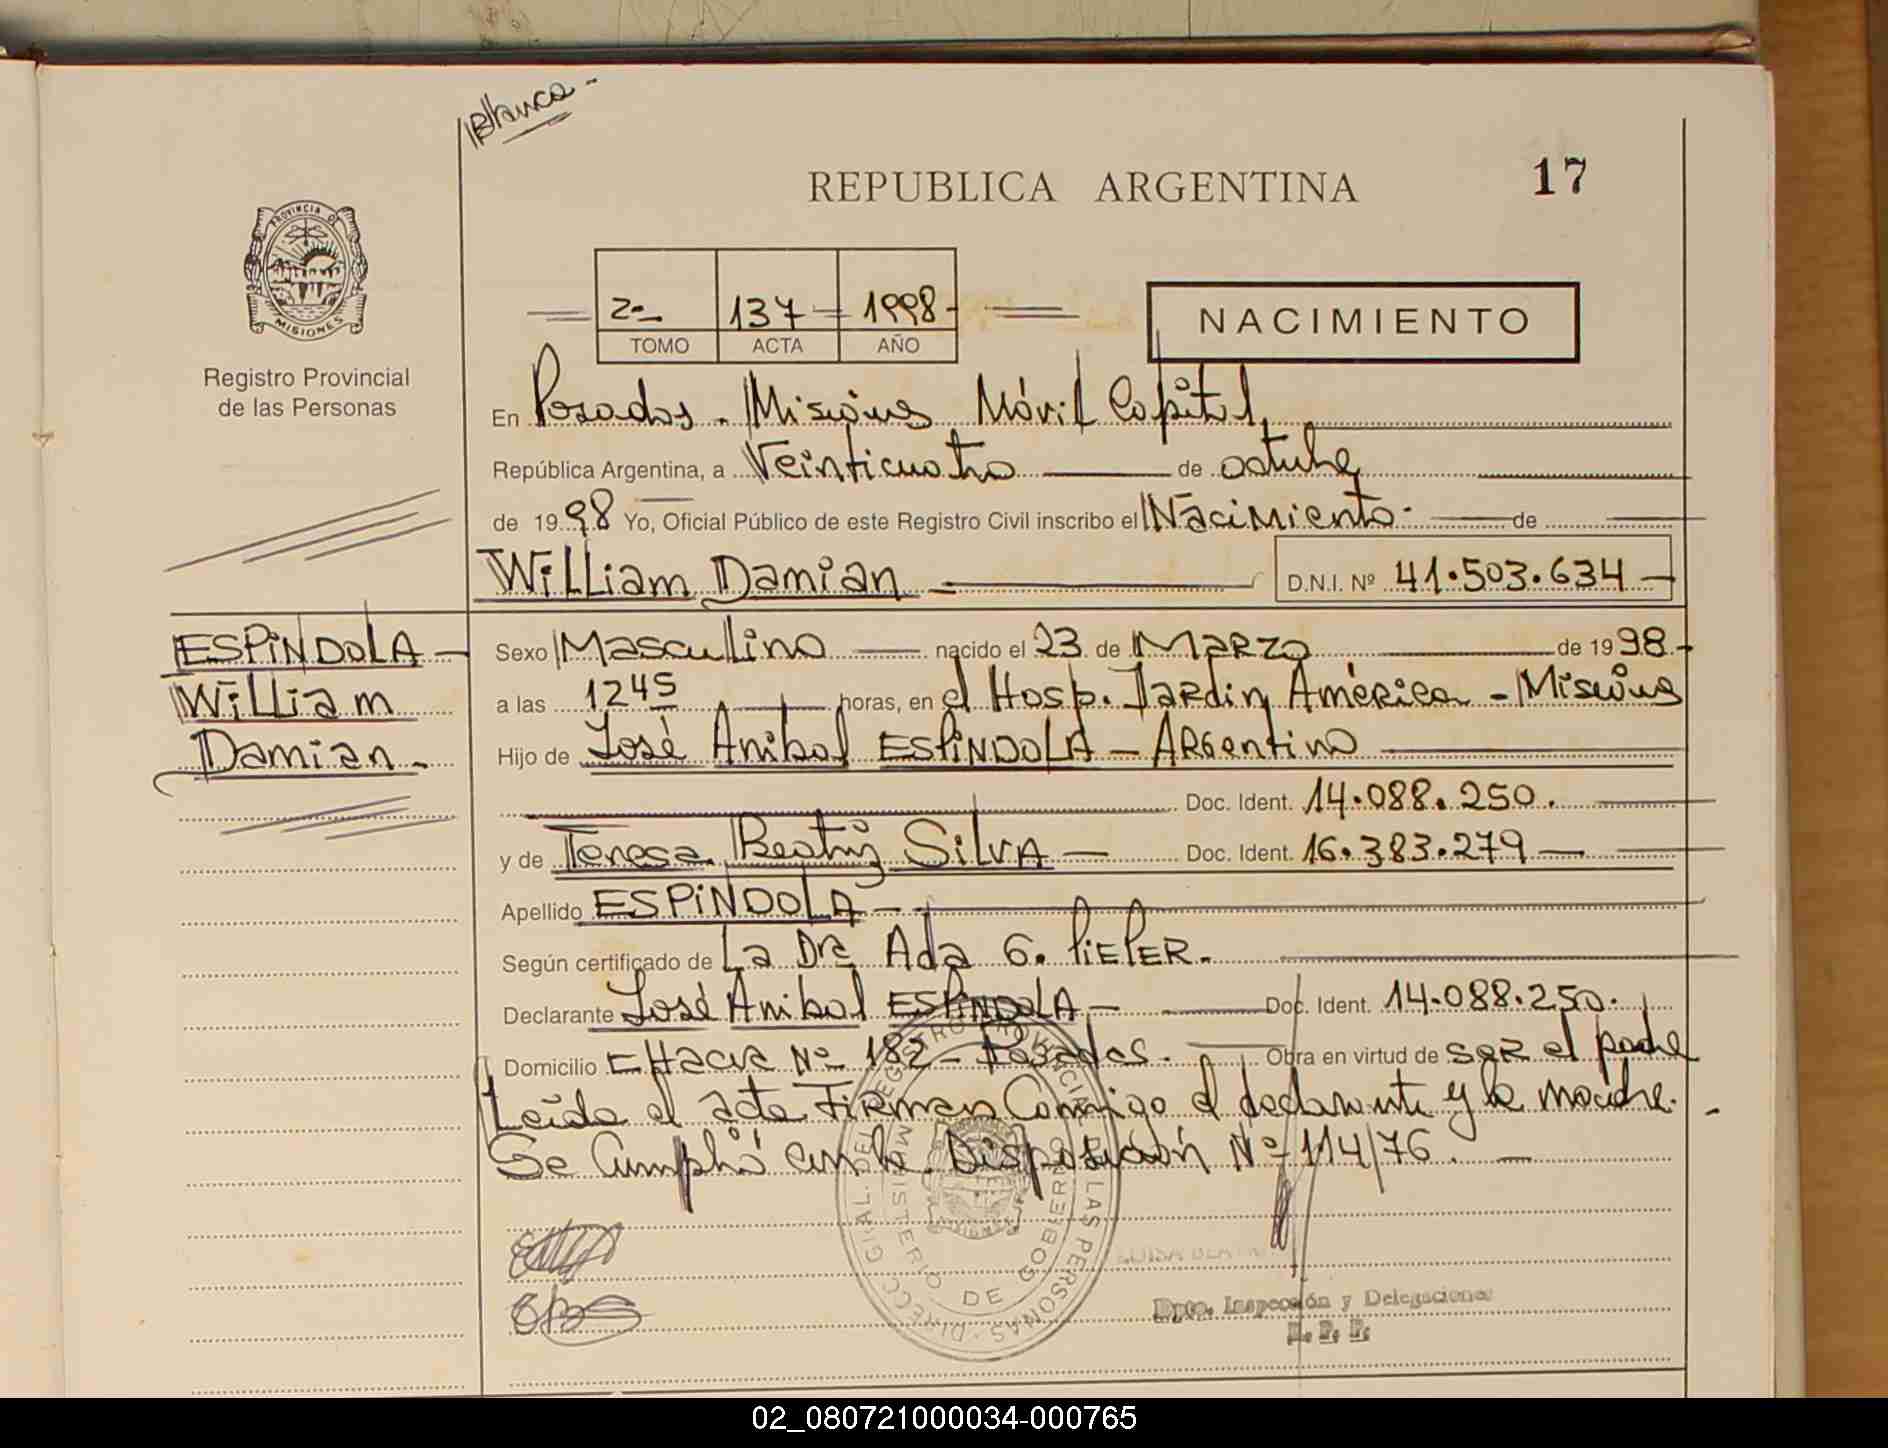 Blanca -
REPUBLICA ARGENTINA
17
PROVINCIA DE MISIONES
Registro Provincial
de las Personas
2º- 137 1998-
TOMO ACTA AÑO
NACIMIENTO
En Posadas - Misiones Móvil Capital
República Argentina, a Veinticuatro de octubre
de 1998 Yo, Oficial Público de este Registro Civil inscribo el Nacimiento - de
William Damian - D.N.I. Nº 41.503.634 -
ESPINDOLA -
William
Damian -
Sexo Masculino nacido el 23 de MARZO de 1998.-
a las 12 45 horas, en el Hosp. Jardin América - Misiones
Hijo de José Anibal ESPINDOLA - ARGentino
Doc. Ident. 14.088.250.
y de Teresa Beatriz SILVA - Doc. Ident. 16.383.279 -
Apellido ESPINDOLA -
Según certificado de La Dra Ada G. PIEPER.
Declarante José Anibal ESPINDOLA - Doc. Ident. 14.088.250.
Domicilio Nº 182 - Posadas. Obra en virtud de ser el padre
Leída el acta Firman Conmigo el declarante y la madre.
Se Cumplió con la Disposición Nº 114/76. -
DIRECC. GRAL. DEL REGISTRO PROVINCIAL DE LAS PERSONAS
MINISTERIO DE GOBIERNO
Dpto. Inspección y Delegaciones
R. P. P.
02_080721000034-000765